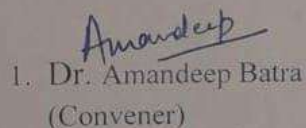 Amandeep
1. Dr. Amandeep Batra
(Convener)